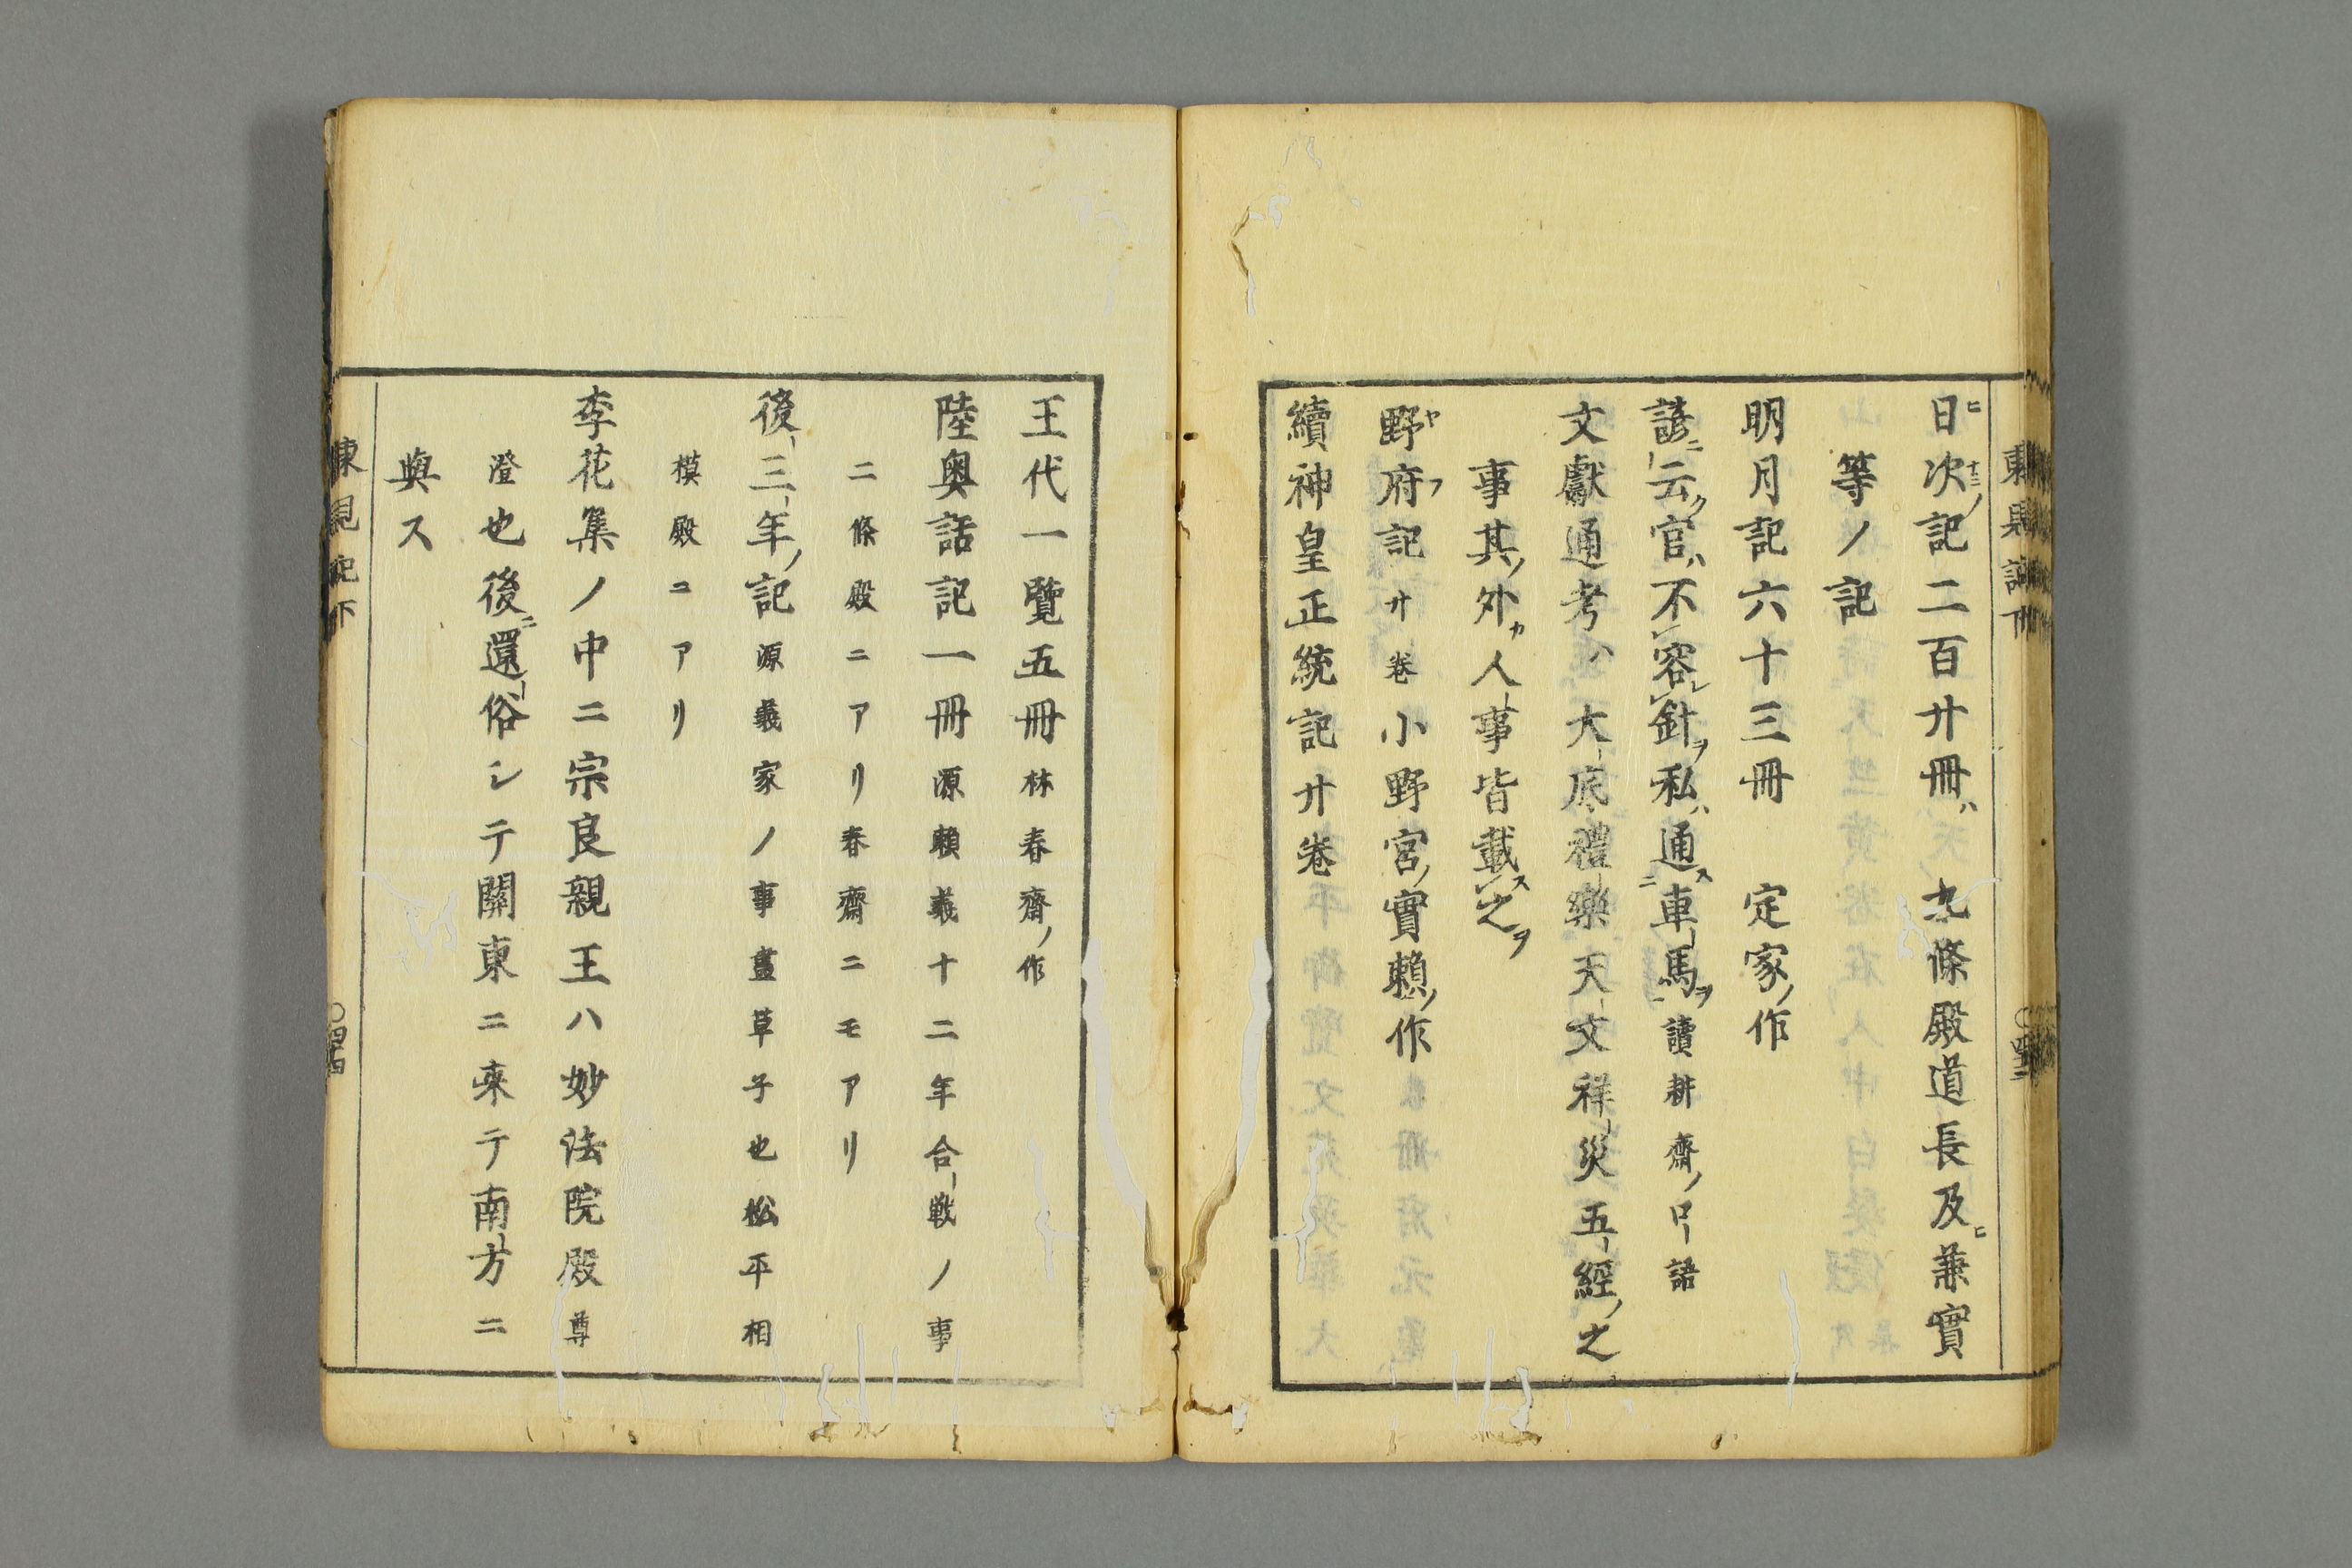 日次ノ記二百廿冊ハ 九條殿道長及ヒ兼實
等ノ記
明月記六十三冊 定家ノ作
諺ニ云ク官ハ不容レ針ヲ私ハ通ス車馬ヲ讀耕齋ノ口語
文獻通考ハ大底禮樂天文祥災五經ノ之
事其ノ外カ人事皆載ス之ヲ
野府記廿卷小野宮ノ實賴ノ作
續神皇正統記廿卷
王代一覽五冊林春齋ノ作
陸奥話記一冊源賴義十二年合戦ノ事
二條殿ニアリ春齋ニモアリ
後三年ノ記源義家ノ事畫草子也松平相
模殿ニアリ
李花集ノ中ニ宗良親王ハ妙法院殿尊
澄也後ニ還俗シテ關東ニ来テ南方ニ
與ス